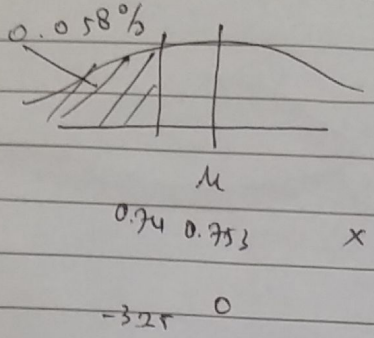 0.058%
μ
0.74 0.753 x
-3.25 0